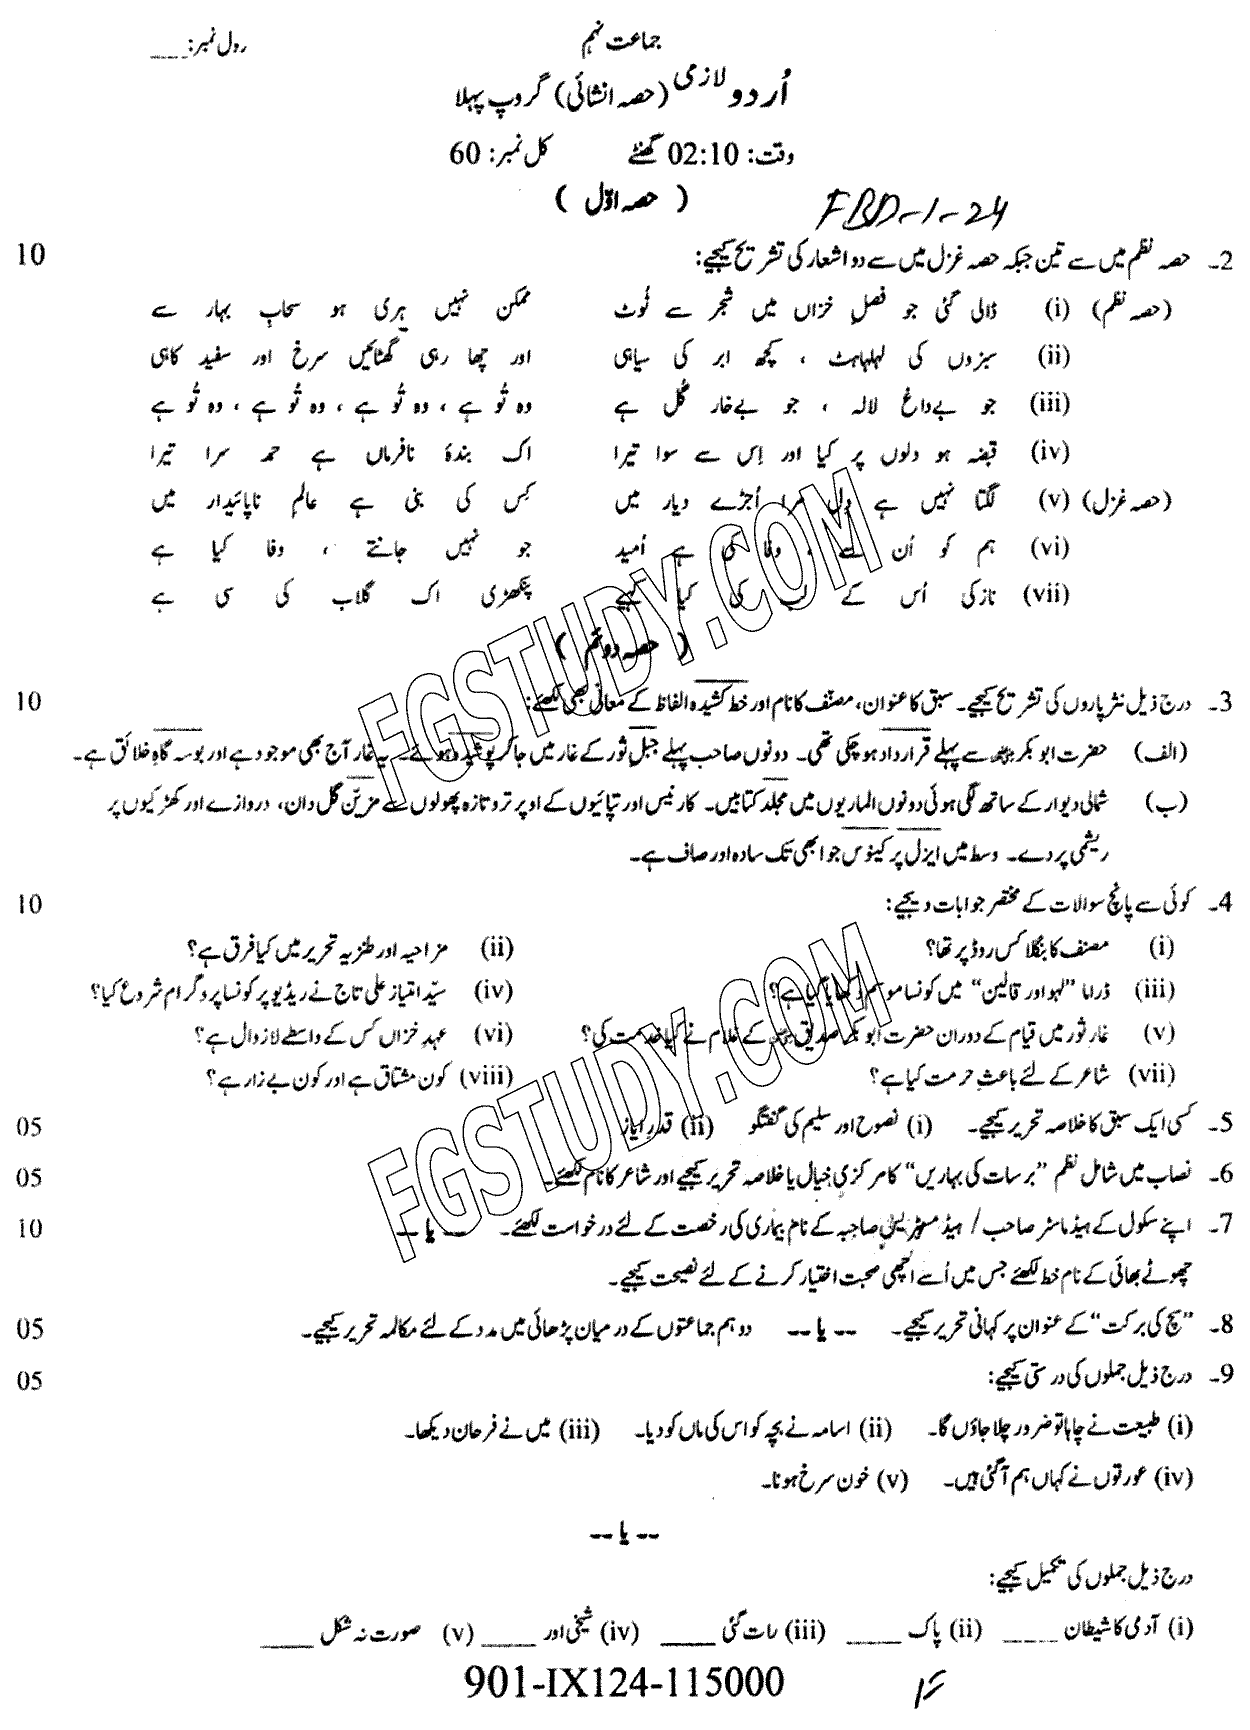 جماعت نہم
رول نمبر: ___
اُردو لازمی (حصہ انشائی) گروپ پہلا
وقت: 02:10 گھنٹے کل نمبر: 60
( حصہ اوّل )
FBD-1-24
2۔ حصہ نظم میں سے تین جبکہ حصہ غزل میں سے دو اشعار کی تشریح کیجیے: 10
(حصہ نظم) (i) ڈالی گئی جو فصلِ خزاں میں شجر سے ٹوٹ ممکن نہیں ہری ہو سحابِ بہار سے
(ii) سبزوں کی لہلہاہٹ ، کچھ ابر کی سیاہی اور چھا رہی گھٹائیں سرخ اور سفید کاہی
(iii) جو بےداغ لالہ ، جو بےخار گُل ہے وہ تُو ہے ، وہ تُو ہے ، وہ تُو ہے ، وہ تُو ہے
(iv) قبضہ ہو دلوں پر کیا اور اِس سے سوا تیرا اک بندۂ نافرماں ہے حمد سرا تیرا
(حصہ غزل) (v) لگتا نہیں ہے دل مرا اُجڑے دیار میں کِس کی بنی ہے عالمِ ناپائیدار میں
(vi) ہم کو اُن سے ، وفا کی ہے اُمید جو نہیں جانتے ، وفا کیا ہے
(vii) نازکی اُس کے لب کی کیا کہیے پنکھڑی اک گلاب کی سی ہے
( حصہ دوئم )
3۔ درج ذیل نثر پاروں کی تشریح کیجیے۔ سبق کا عنوان، مصنّف کا نام اور خط کشیدہ الفاظ کے معانی بھی لکھئے: 10
(الف) حضرت ابو بکرؓ سے پہلے قرارداد ہو چکی تھی۔ دونوں صاحب پہلے جبلِ ثور کے غار میں جا کر پوشیدہ ہوئے۔ یہ غار آج بھی موجود ہے اور بوسہ گاہِ خلائق ہے۔
(ب) شمالی دیوار کے ساتھ لگی ہوئی دونوں الماریوں میں مجلد کتابیں۔ کارنیس اور تپائیوں کے اوپر تروتازہ پھولوں سے مزیّن گل دان، دروازے اور کھڑکیوں پر
ریشمی پردے۔ وسط میں ایزل پر کینوس جو ابھی تک سادہ اور صاف ہے۔
4۔ کوئی سے پانچ سوالات کے مختصر جوابات دیجیے: 10
(i) مصنف کا بنگلا کس روڈ پر تھا؟ (ii) مزاحیہ اور طنزیہ تحریر میں کیا فرق ہے؟
(iii) ڈراما "لہو اور قالین" میں کونسا موسم دکھایا گیا ہے؟ (iv) سیّد امتیاز علی تاج نے ریڈیو پر کونسا پروگرام شروع کیا؟
(v) غارِ ثور میں قیام کے دوران حضرت ابو بکر صدیقؓ کے غلام نے کیا خدمت کی؟ (vi) عہدِ خزاں کس کے واسطے لازوال ہے؟
(vii) شاعر کے لئے باعثِ حرمت کیا ہے؟ (viii) کون مشتاق ہے اور کون بے زار ہے؟
5۔ کسی ایک سبق کا خلاصہ تحریر کیجیے۔ (i) نصوح اور سلیم کی گفتگو (ii) قدرِ ایاز 05
6۔ نصاب میں شامل نظم "برسات کی بہاریں" کا مرکزی خیال یا خلاصہ تحریر کیجیے اور شاعر کا نام لکھئے۔ 05
7۔ اپنے سکول کے ہیڈ ماسٹر صاحب / ہیڈ مسٹریس صاحبہ کے نام بیماری کی رخصت کے لئے درخواست لکھئے۔ -- یا -- 10
چھوٹے بھائی کے نام خط لکھئے جس میں اُسے اچھی صحبت اختیار کرنے کے لئے نصیحت کیجیے۔
8۔ "سچ کی برکت" کے عنوان پر کہانی تحریر کیجیے۔ -- یا -- دو ہم جماعتوں کے درمیان پڑھائی میں مدد کے لئے مکالمہ تحریر کیجیے۔ 05
9۔ درج ذیل جملوں کی درستی کیجیے: 05
(i) طبیعت نے چاہا تو ضرور چلا جاؤں گا۔ (ii) اسامہ نے بچہ کو اس کی ماں کو دیا۔ (iii) میں نے فرحان دیکھا۔
(iv) عورتوں نے کہاں ہم آ گئی ہیں۔ (v) خون سرخ ہونا۔
-- یا --
درج ذیل جملوں کی تکمیل کیجیے:
(i) آدمی کا شیطان ____ (ii) پاک ____ (iii) رات گئی ____ (iv) شیخی اور ____ (v) صورت نہ شکل ____
901-IX124-115000
FGSTUDY.COM
FGSTUDY.COM